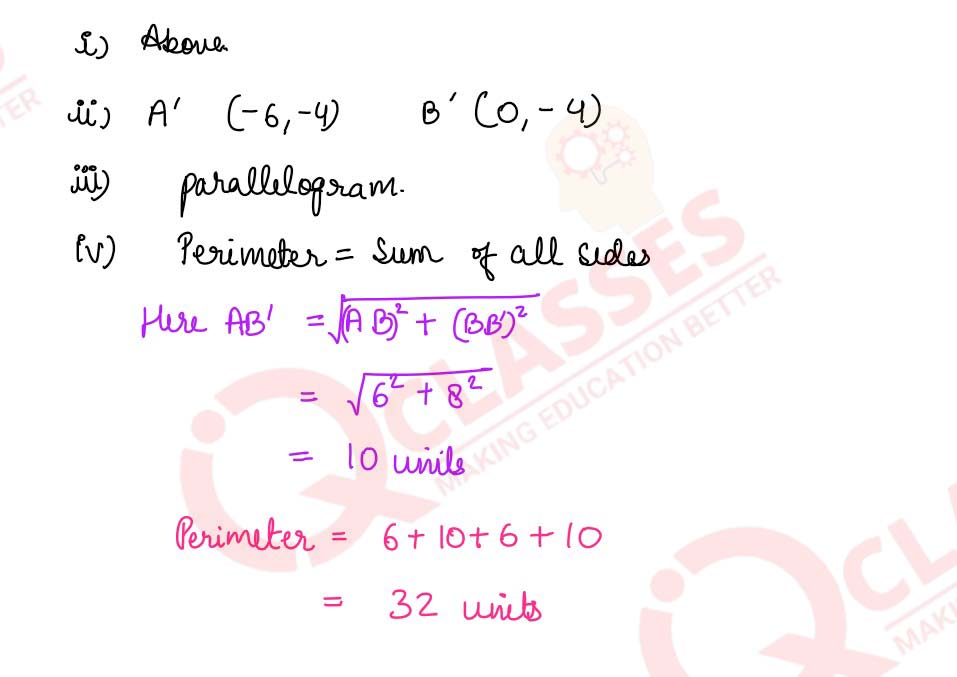 i) Above
ii) A' (-6,-4) B' (0,-4)
iii) parallelogram.
iv) Perimeter = Sum of all sides
Here AB' = √(AB)² + (BB')²
= √6² + 8²
= 10 units
Perimeter = 6+10+6+10
= 32 units
iQ CLASSES
MAKING EDUCATION BETTER